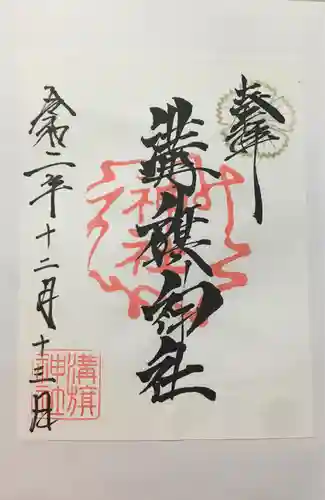 奉拝
溝旗神社
令和二年十二月十三日
溝旗
神社